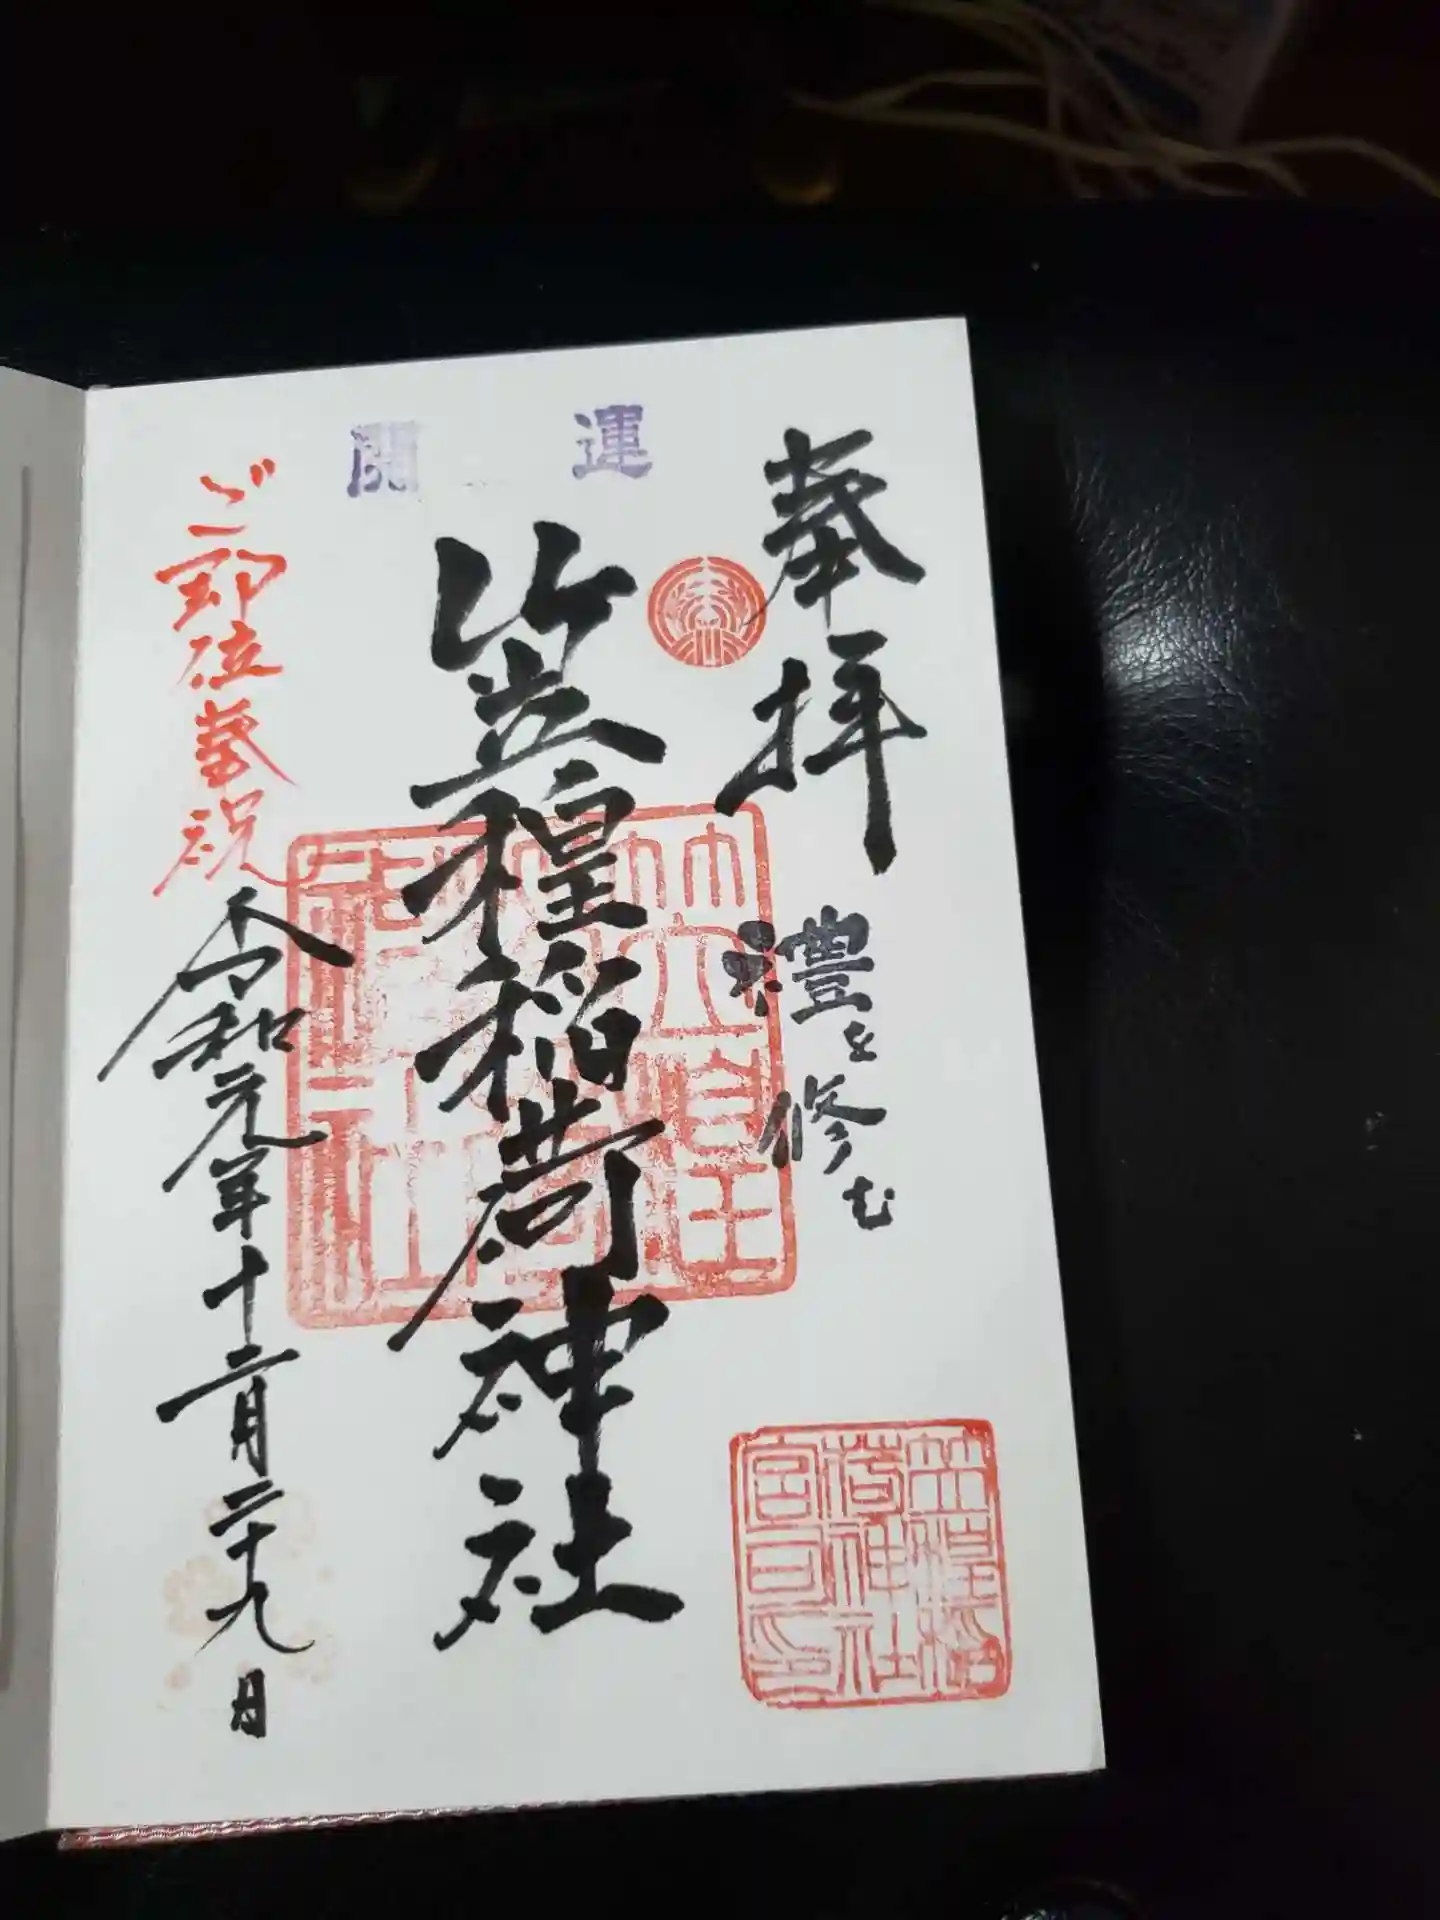 開運
奉拝
禮を修む
笠䅣稲荷神社
ご即位奉祝
令和元年十二月二十九日
笠䅣
稲荷
神社
笠䅣稲
荷神社
宮司印